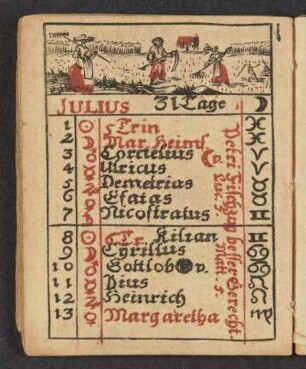 JULIUS 31 Tage ☽
1 ☉ 5 Trin ♓
2 Mar. Heims ♓
3 ♂ Cornelius ♈
4 Ulricus ♈
5 Demetrias ♉
6 ♀ Esaias ♉
7 Nicostratus ♊
8 ☉ 6 Tr. Kilian ♊
9 Cyrillus
10 ♂ Gottlob
11 Pius
12 Heinrich
13 Margaretha ♍
Petri Fischzug Luc. 5.
besser Gerecht. Matt. 5.